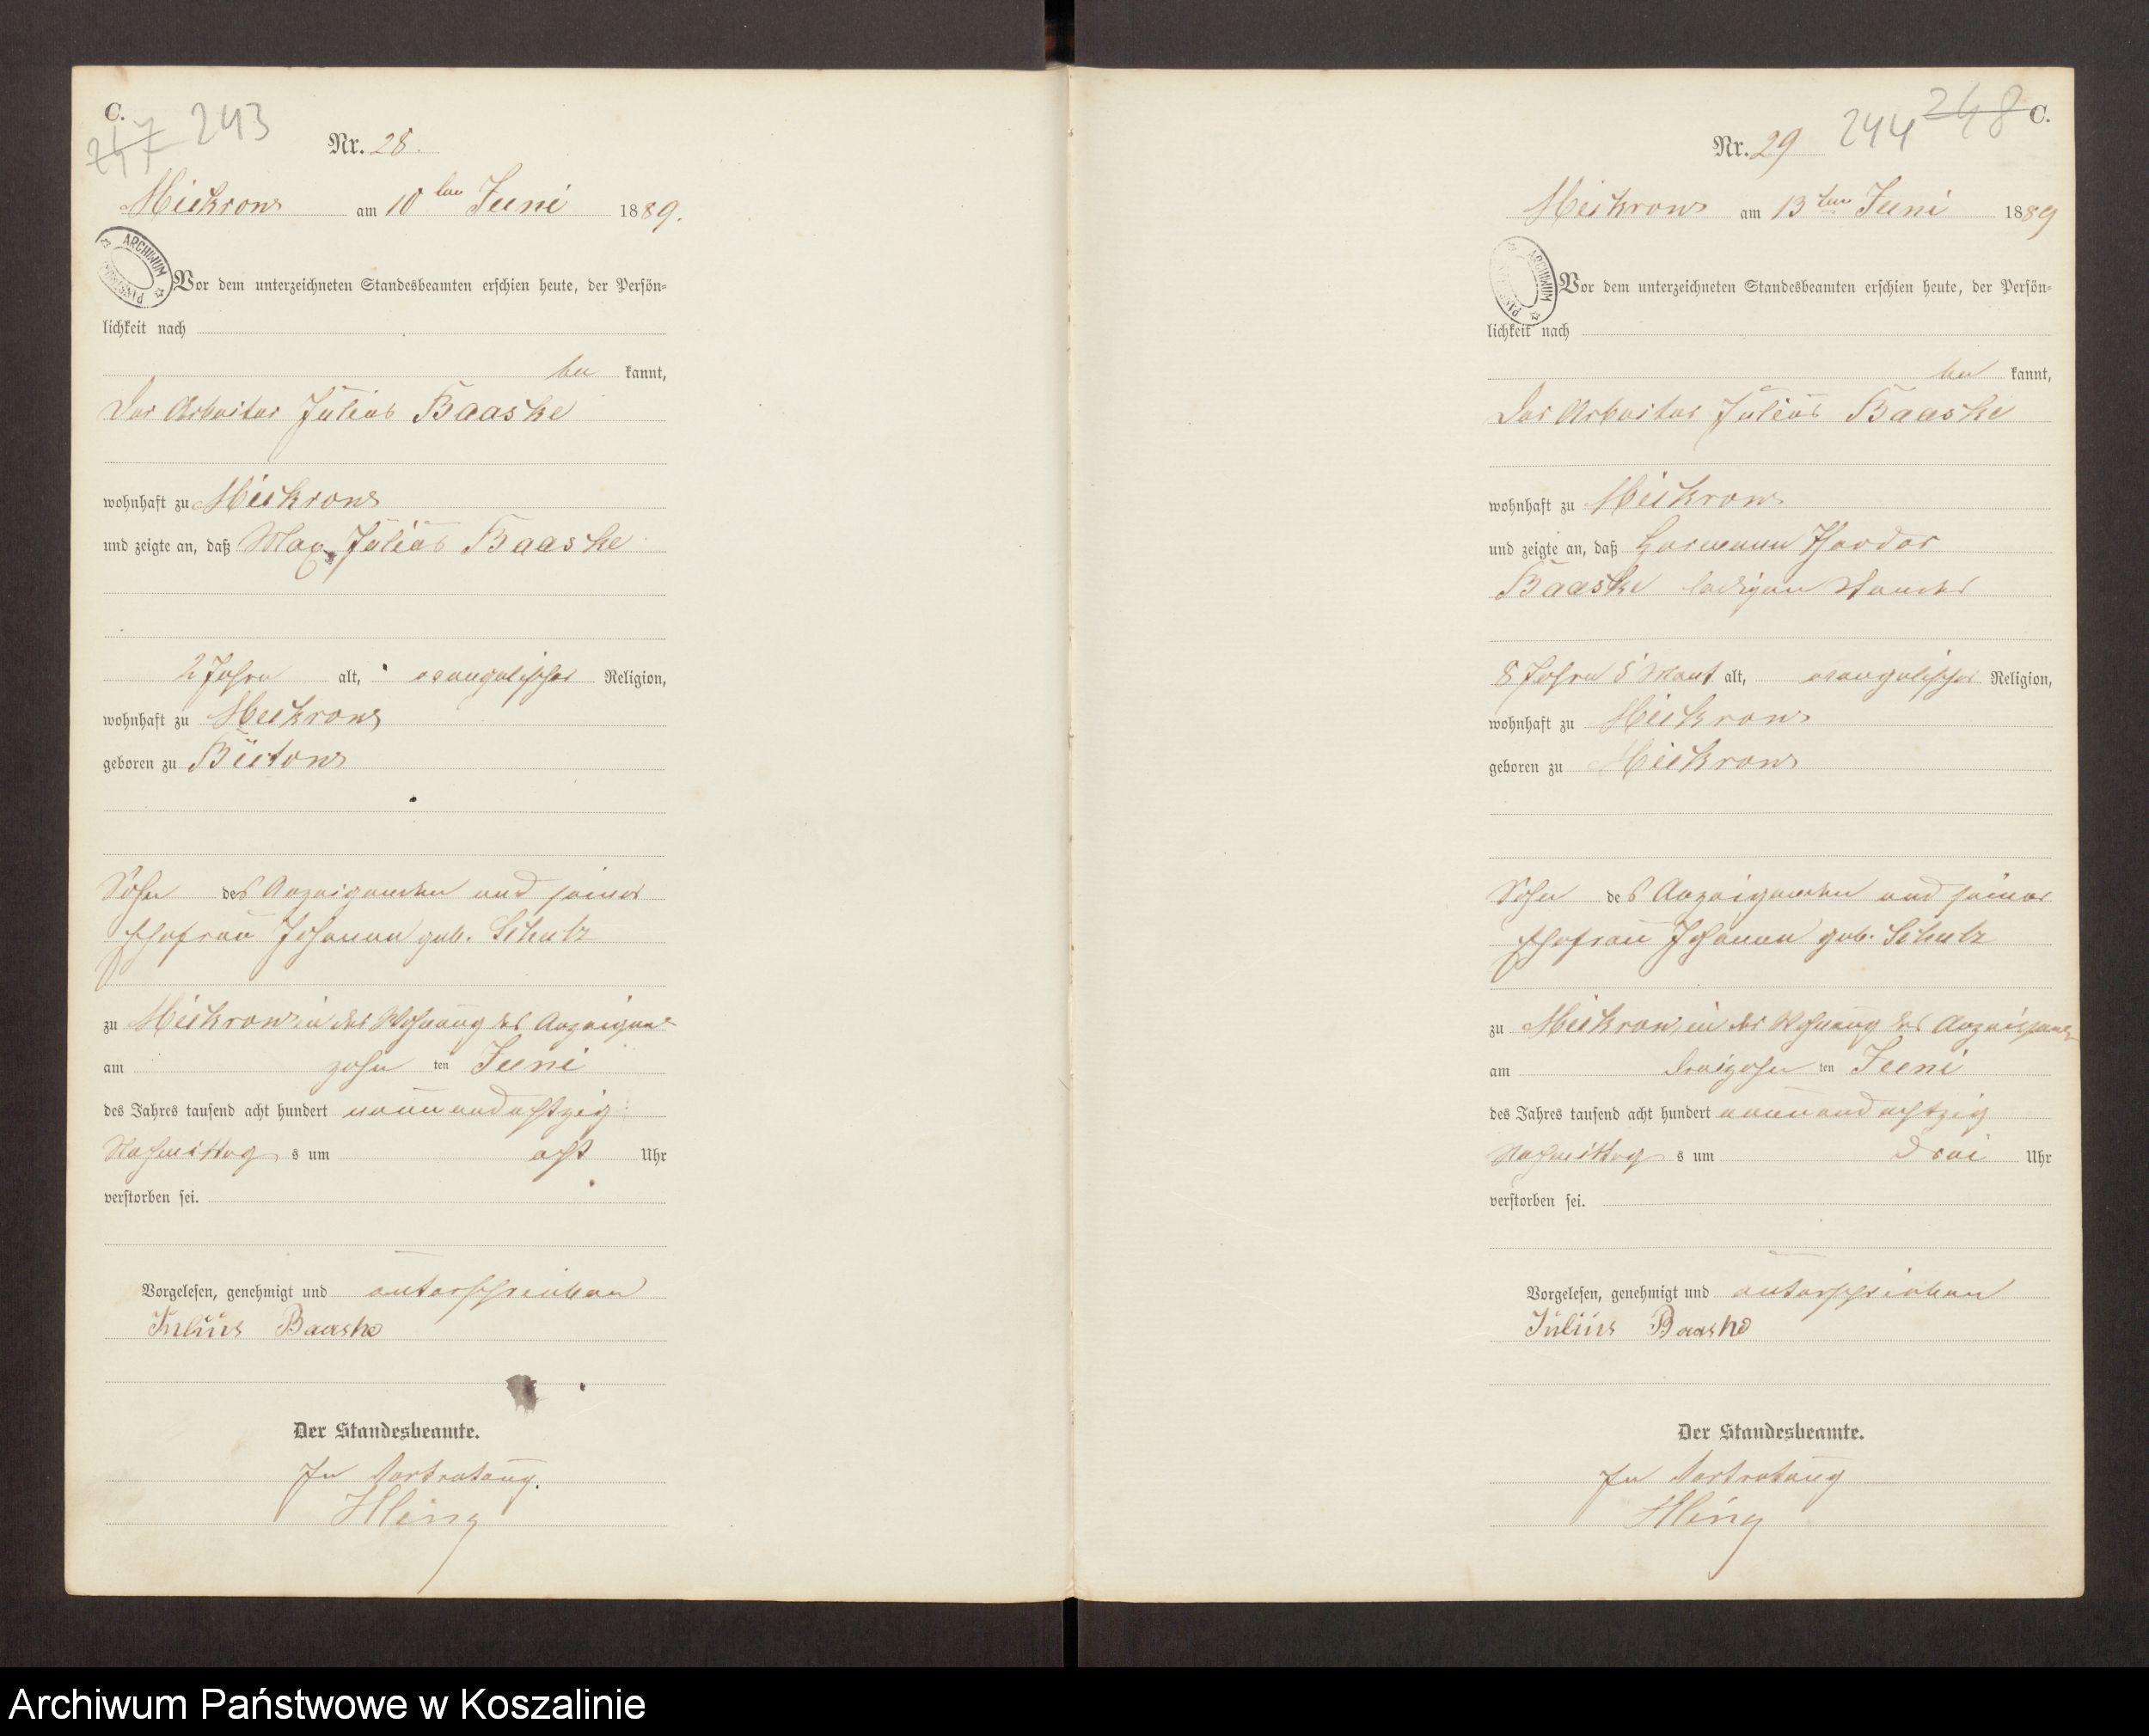 C.
247 243
Nr. 28.
Meikrow am 10ten Juni 1889.
ARCHIWUM
PAŃSTWOWE
Vor dem unterzeichneten Standesbeamten erschien heute, der Persön-
lichkeit nach
be kannt,
Der Arbeiter Julius Baaske
wohnhaft zu Meikrow
und zeigte an, daß Max Julius Baaske
2 Jahre alt, evangelischer Religion,
wohnhaft zu Meikrow
geboren zu Bütow
Sohn des Anzeigenden und seiner
Ehefrau Johanna geb. Schulz
zu Meikrow in der Wohnung des
am zehn ten Juni
des Jahres tausend acht hundert neun und achtzig
Nachmittag s um acht Uhr
verstorben sei.
Vorgelesen, genehmigt und unterschrieben
Julius Baaske
Der Standesbeamte.
In Vertretung.
C.
244 248
Nr. 29
Meikrow am 13ten Juni 1889
ARCHIWUM
Vor dem unterzeichneten Standesbeamten erschien heute, der Persön-
lichkeit nach
be kannt,
Der Arbeiter Julius Baaske
wohnhaft zu Meikrow
und zeigte an, daß Hermann Theodor
Baaske ledigen Standes
8 Jahre 5 Monat alt, evangelischer Religion,
wohnhaft zu Meikrow
geboren zu Meikrow
Sohn des Anzeigenden und seiner
Ehefrau Johanna geb. Schulz
zu Meikrow, in der Wohnung des
am dreizehn ten Juni
des Jahres tausend acht hundert neun und achtzig
Nachmittag s um drei Uhr
verstorben sei.
Vorgelesen, genehmigt und unterschrieben
Julius Baaske
Der Standesbeamte.
In Vertretung
Archiwum Państwowe w Koszalinie